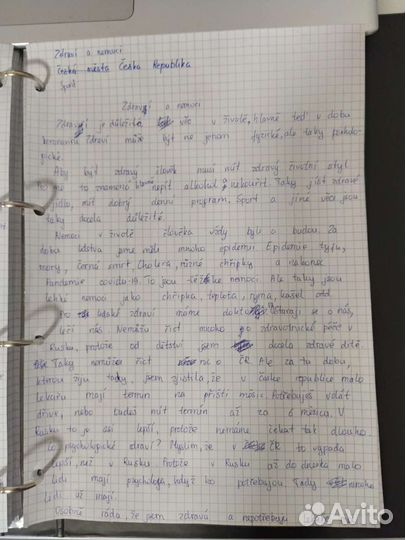 Zdraví a nemoci
Česká města Česka Republika
Sport
Zdraví a nemoci
Zdraví je důležitá věc v životě, hlavně teď v dobu
koronaviru. Zdraví může být ne jenom fyzické, ale taky psicho-
gické.
Aby být zdravý člověk musí mít zdravý životní styl
to znamená nepít alkohol a nekouřit. Taky jíst zdravé
jídlo, mít dobrý denní program. Sport a jíne věci jsou
taky docela důležité.
Nemoci v životě člověka vždy byli a budou. Za
doba lidstva jsme měli mnoho epidemií. Epidemie tyfu,
mory, černá smrt, Cholera, různé chřipky a nakonec
Pandemie covidu-19. To jsou těžke nemoci. Ale taky jsou
lehké nemoci jako chřipka, teplota, ryma, kašel atd.
Pro lidské zdraví máme starají se o nás,
léčí nás. Nemůžu říct mnoho po zdravotnické péči v
Rusku, protože od dětství jsem docela zdravé dítě.
Taky nemůžu říct nic o ČR. Ale za tu dobu,
kterou žiju tady, jsem zjistila, že v česke republice málo
lekařu mají termín na příští měsíc. Potřebuješ volát
dříve, nebo budeš mít termín až za 6 měsíců. V
Rusku to je asi lepší, protože nemáme čekat tak dlouho.
Co psychologické zdraví? Myslím, že v ČR to vypadá
lepší, než v Rusku. Protože v Rusku až do dneska málo
lidi mají psychologa, když ho potřebujou. Tady mnoho
lidí už mají.
Osobně ráda, že jsem zdravá a nepotřebuju